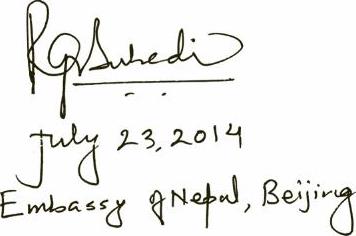 July 23, 2014
Embassy of Nepal, Beijing